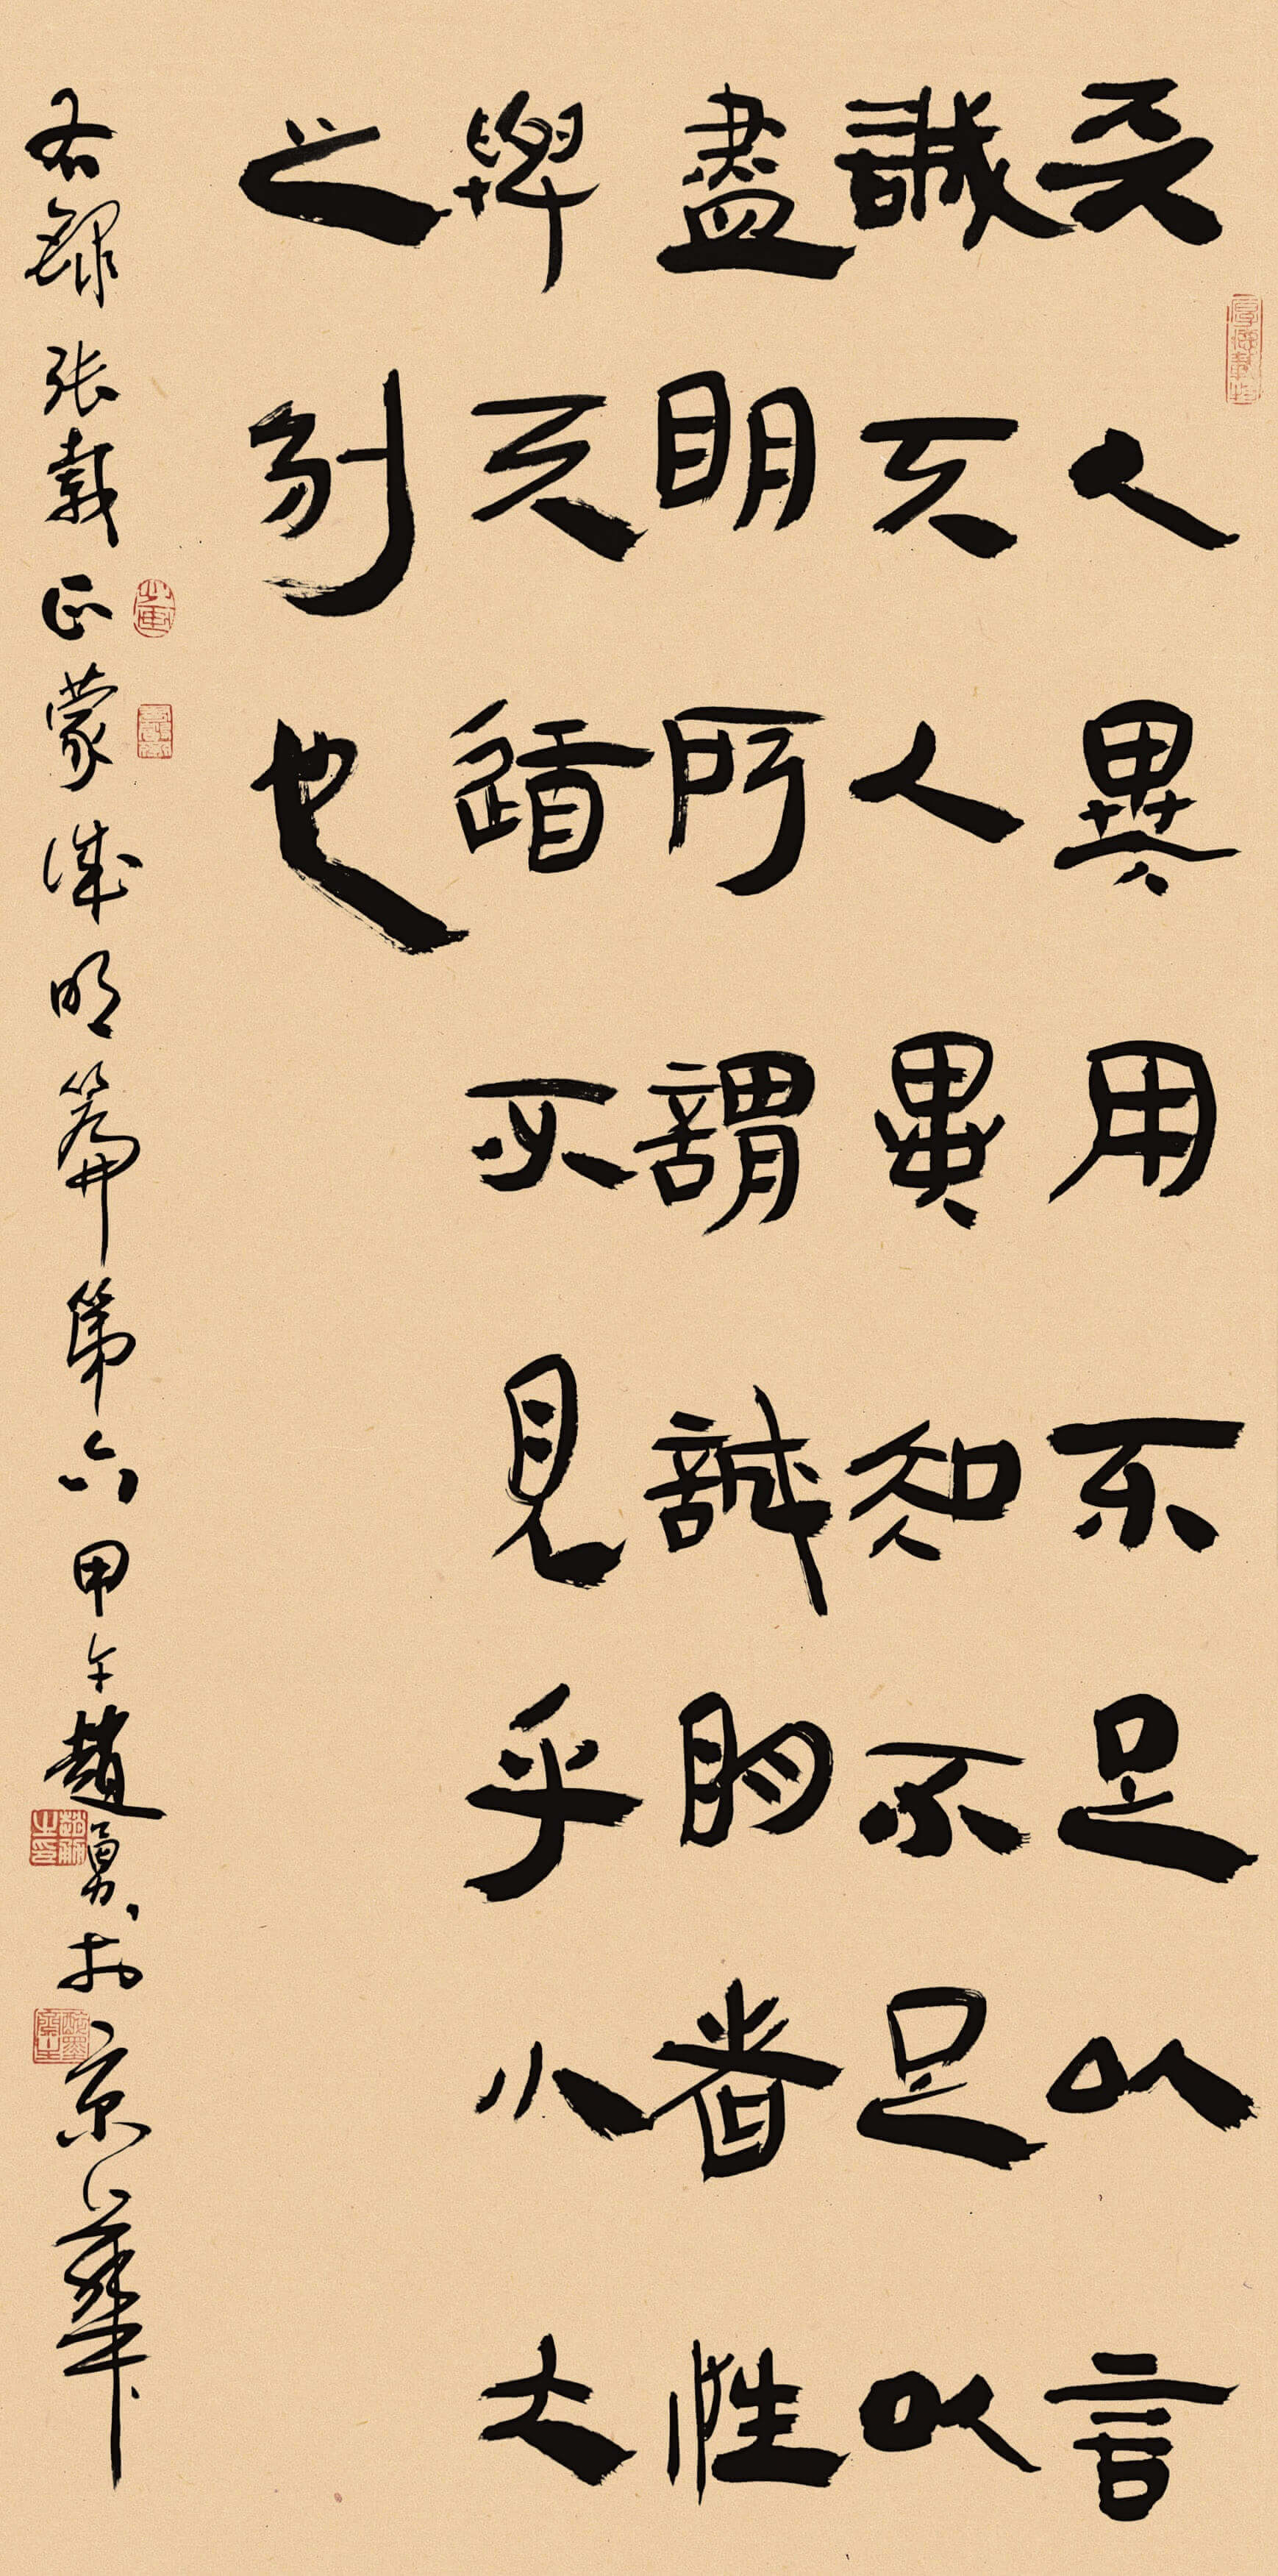 天人異用不足以言
誠天人異知不足以
盡明所謂誠明者性
與天道不見乎小大
之别也
右錄張載正蒙誠明篇第六甲午趙勇於京華
厚德載物